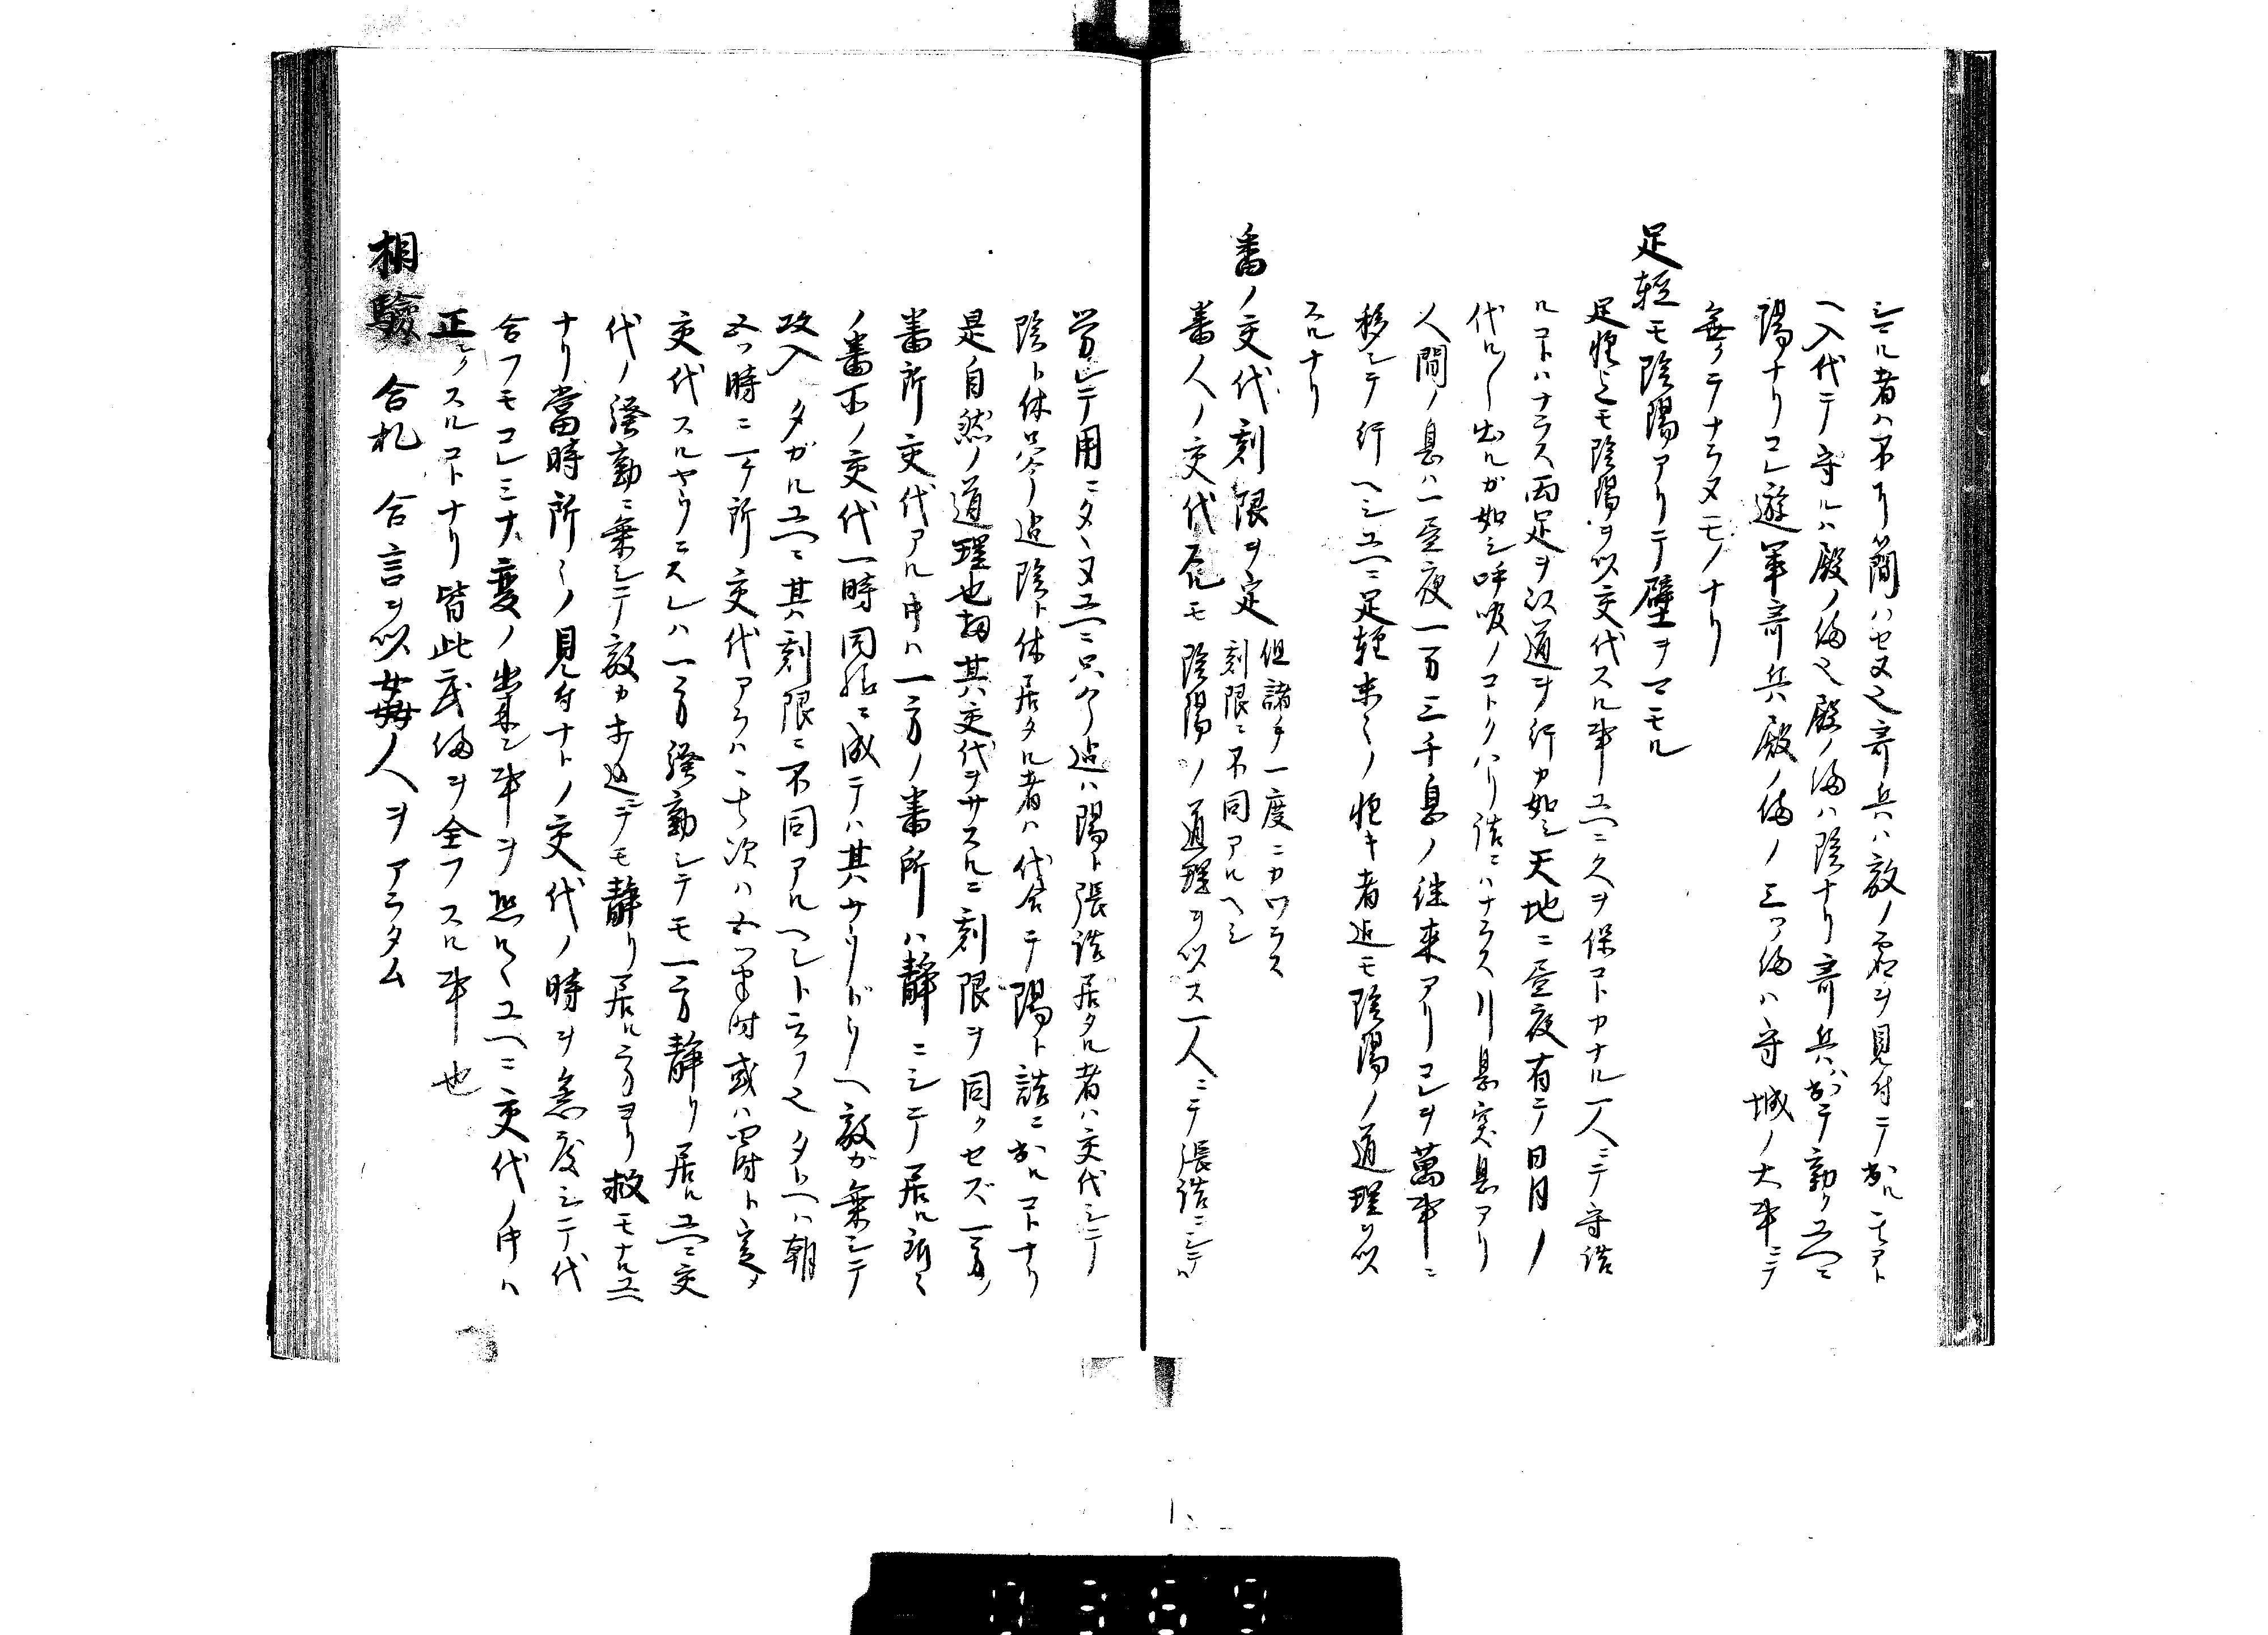 ヘ入代テ守ルハ殿ノ備也殿ノ備ハ陰ナリ奇兵ハ出テ動クユヘニ
陽ナリコレ遊軍奇兵殿ノ備ノ三ツ備ハ守城ノ大事ニテ
無クテナラヌモノナリ
足軽モ陰陽アリテ壁ヲマモル
足軽トモ陰陽ヲ以交代スル事ユヘニ久ヲ保コトカナル一人ニテ守詰
ルコトハナラス両足ヲ以道ヲ行カ如シ天地ニ昼夜有テ日月ノ
代ル〳〵出ルガ如シ呼吸ノコトクハリ詰ニハナラス引息突息アリ
人間ノ息ハ一昼夜一万三千息ノ往来アリコレヲ萬事ニ
移シテ行ヘシユヘニ足軽末々ノ軽キ者迄モ陰陽ノ道理ヲ以
スルナリ
番ノ交代刻限ヲ定 但諸手一度ニカワラス
刻限ニ不同アルヘシ
番人ノ交代スルモ陰陽ノ道理ヲ以ス一人ニテ張詰ニシテハ
労シテ用ニタヽヌユヘニ只今迄ハ陽ト張詰居タル者ハ交代シテ
陰ト休只今迄陰ト休居タル者ハ代合テ陽ト詰ニ出ルコトナリ
是自然ノ道理也扨其交代ヲサスルニ刻限ヲ同クセズ一方ノ
番所交代アル中ハ一方ノ番所ハ静ニシテ居ル諸々
ノ番所ノ交代一時同然ニ成テハ其サワドウリヘ敵ガ乗シテ
攻入タガルユヘニ其刻限ニ不同アルヘシト云フ也タトヘハ朝
五ツ時ニ一ケ所交代アラハ其次ハ五ツ半時或ハ四時ト定メ
交代スルヤウニスレハ一方騒動シテモ一方静リ居ルユヘニ交
代ノ騒動ニ乗シテ敵カ来迚モ静リ居ル方ヨリ救モナルユヘ
ナリ當時所々ノ見付ナトノ交代ノ時ヲ急度シテ代
合フモコレミナ変ノ出来シ事ヲ恐ルヽユヘニ交代ノ中ハ
正シクスルコトナリ皆此武備ヲ全フスル事也
相驗 合札 合言ヲ以姦人ヲアラタム